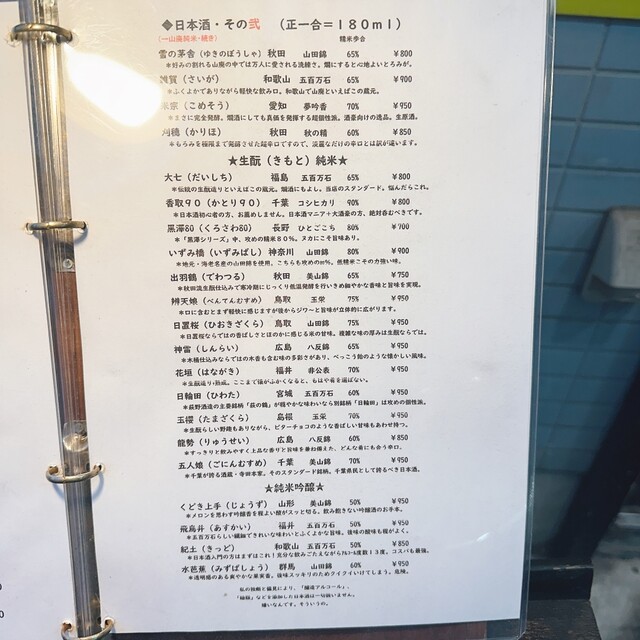 ◆日本酒・その弐 （正一合＝180ml）
(一山廃純米・続き) 精米歩合
雪の茅舎（ゆきのぼうしゃ） 秋田 山田錦 65% ¥800
＊好みの割れる山廃の中では万人に愛される洗練さ。燗にすると心地よいとろみが。
雑賀（さいが） 和歌山 五百万石 65% ¥900
＊ふくよかでありながら軽快な飲み口。和歌山で山廃といえばこの蔵元。
（こめそう） 愛知 夢吟香 70% ¥950
＊まさに完全発酵。燗酒にしても真価を発揮する超個性派。酒豪向けの逸品。生原酒。
刈穂（かりほ） 秋田 秋の精 60% ¥850
＊もろみを極限まで発酵させた超辛口ですので、淡麗なだけの辛口とは訳が違います。
★生酛（きもと）純米★
大七（だいしち） 福島 五百万石 65% ¥800
＊伝統の生酛造りといえばこの蔵元。燗酒にもよし。当店のスタンダード。悩んだらこれ。
香取90（かとり90） 千葉 コシヒカリ 90% ¥800
＊日本酒初心者の方、お薦めしません。日本酒マニア＋大酒豪の方、絶対呑むべきです。
黒澤80（くろさわ80） 長野 ひとごこち 80% ¥700
＊「黒澤シリーズ」中、攻めの精米80%。ヌカにこそ旨味あり。
いずみ橋（いずみばし） 神奈川 山田錦 80% ¥900
＊地元・海老名産の山田錦を使用。こちらも攻めの80%。低精米こその力強い味。
出羽鶴（でわつる） 秋田 美山錦 65% ¥750
＊秋田流生酛仕込みで寒冷期にじっくり低温発酵を行いきめ細やかな香味と旨味を実現。
辨天娘（べんてんむすめ） 鳥取 玉栄 75% ¥950
＊口に含むとまず軽快に感じますが後からジワ～と旨味が立体的に広がります。
日置桜（ひおきざくら） 鳥取 山田錦 75% ¥950
＊日置桜ならではの香ばしさとほのかに感じる米の甘味。複雑な味の厚みは生酛ならでは。
神雷（しんらい） 広島 八反錦 65% ¥950
＊木桶仕込みならではの木香も含む味の多彩さがあり、べっこう飴のような懐かしい風味。
花垣（はながき） 福井 非公表 70% ¥950
＊生酛造り＋熟成。ここまで懐がふかくなると、もはや肴を選ばない。
日輪田（ひわた） 宮城 五百万石 60% ¥950
＊萩野酒造の主要銘柄「萩の鶴」が穏やかな味わいなら別銘柄「日輪田」は攻めの個性派。
玉櫻（たまざくら） 島根 玉栄 70% ¥950
＊生酛らしい野趣もありながら、ビターチョコのような香ばしい甘味もあわせ持つ。
龍勢（りゅうせい） 広島 八反錦 60% ¥850
＊すっきりと飲みやすく上品な香りと旨味を兼ね備えた、どんな肴にも合う辛口。
五人娘（ごにんむすめ） 千葉 美山錦 70% ¥950
＊千葉が誇る酒蔵・寺田本家。そのスタンダード銘柄。千葉県民として誇るべき日本酒。
★純米吟醸★
くどき上手（じょうず） 山形 美山錦 50% ¥950
＊メロンを思わす吟醸香を程よい酸がスッと切る。飲み飽きない吟醸酒のお手本。
飛鳥井（あすかい） 福井 五百万石 50% ¥950
＊五百万石らしい繊細できれいな味わいとふくよかな旨味。後味の酸味も程がよく。
紀土（きっど） 和歌山 五百万石 50% ¥850
＊日本酒入門の方はまずはこれ！充分な飲みごたえながらｱﾙｺｰﾙ度数13度。コスパも最強。
水芭蕉（みずばしょう） 群馬 山田錦 60% ¥950
＊透明感のある爽やかな果実香。後味スッキリのためクイクイいけてしまう。危険。
私の独断と偏見により、「醸造アルコール」、
「糖類」などを添加した日本酒は一切扱いません。
嫌いなんです。そういうの。